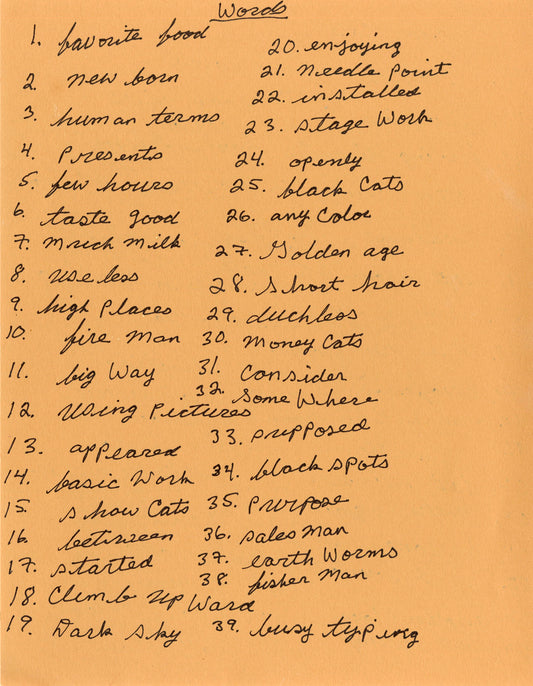 Words
1. favorite food
2. new born
3. human terms
4. Presents
5. few hours
6. taste good
7. Much Milk
8. use less
9. high Places
10. fire Man
11. big Way
12. Using Pictures
13. appeared
14. basic Work
15. show Cats
16. between
17. started
18. Climb up Ward
19. Dark sky
20. enjoying
21. Needle Point
22. installed
23. stage Work
24. openly
25. black Cats
26. any Color
27. Golden age
28. short hair
29. duchless
30. Money Cats
31. Consider
32. Some Where
33. supposed
34. black spots
35. Purpose
36. sales Man
37. earth Worms
38. fisher Man
39. busy typing